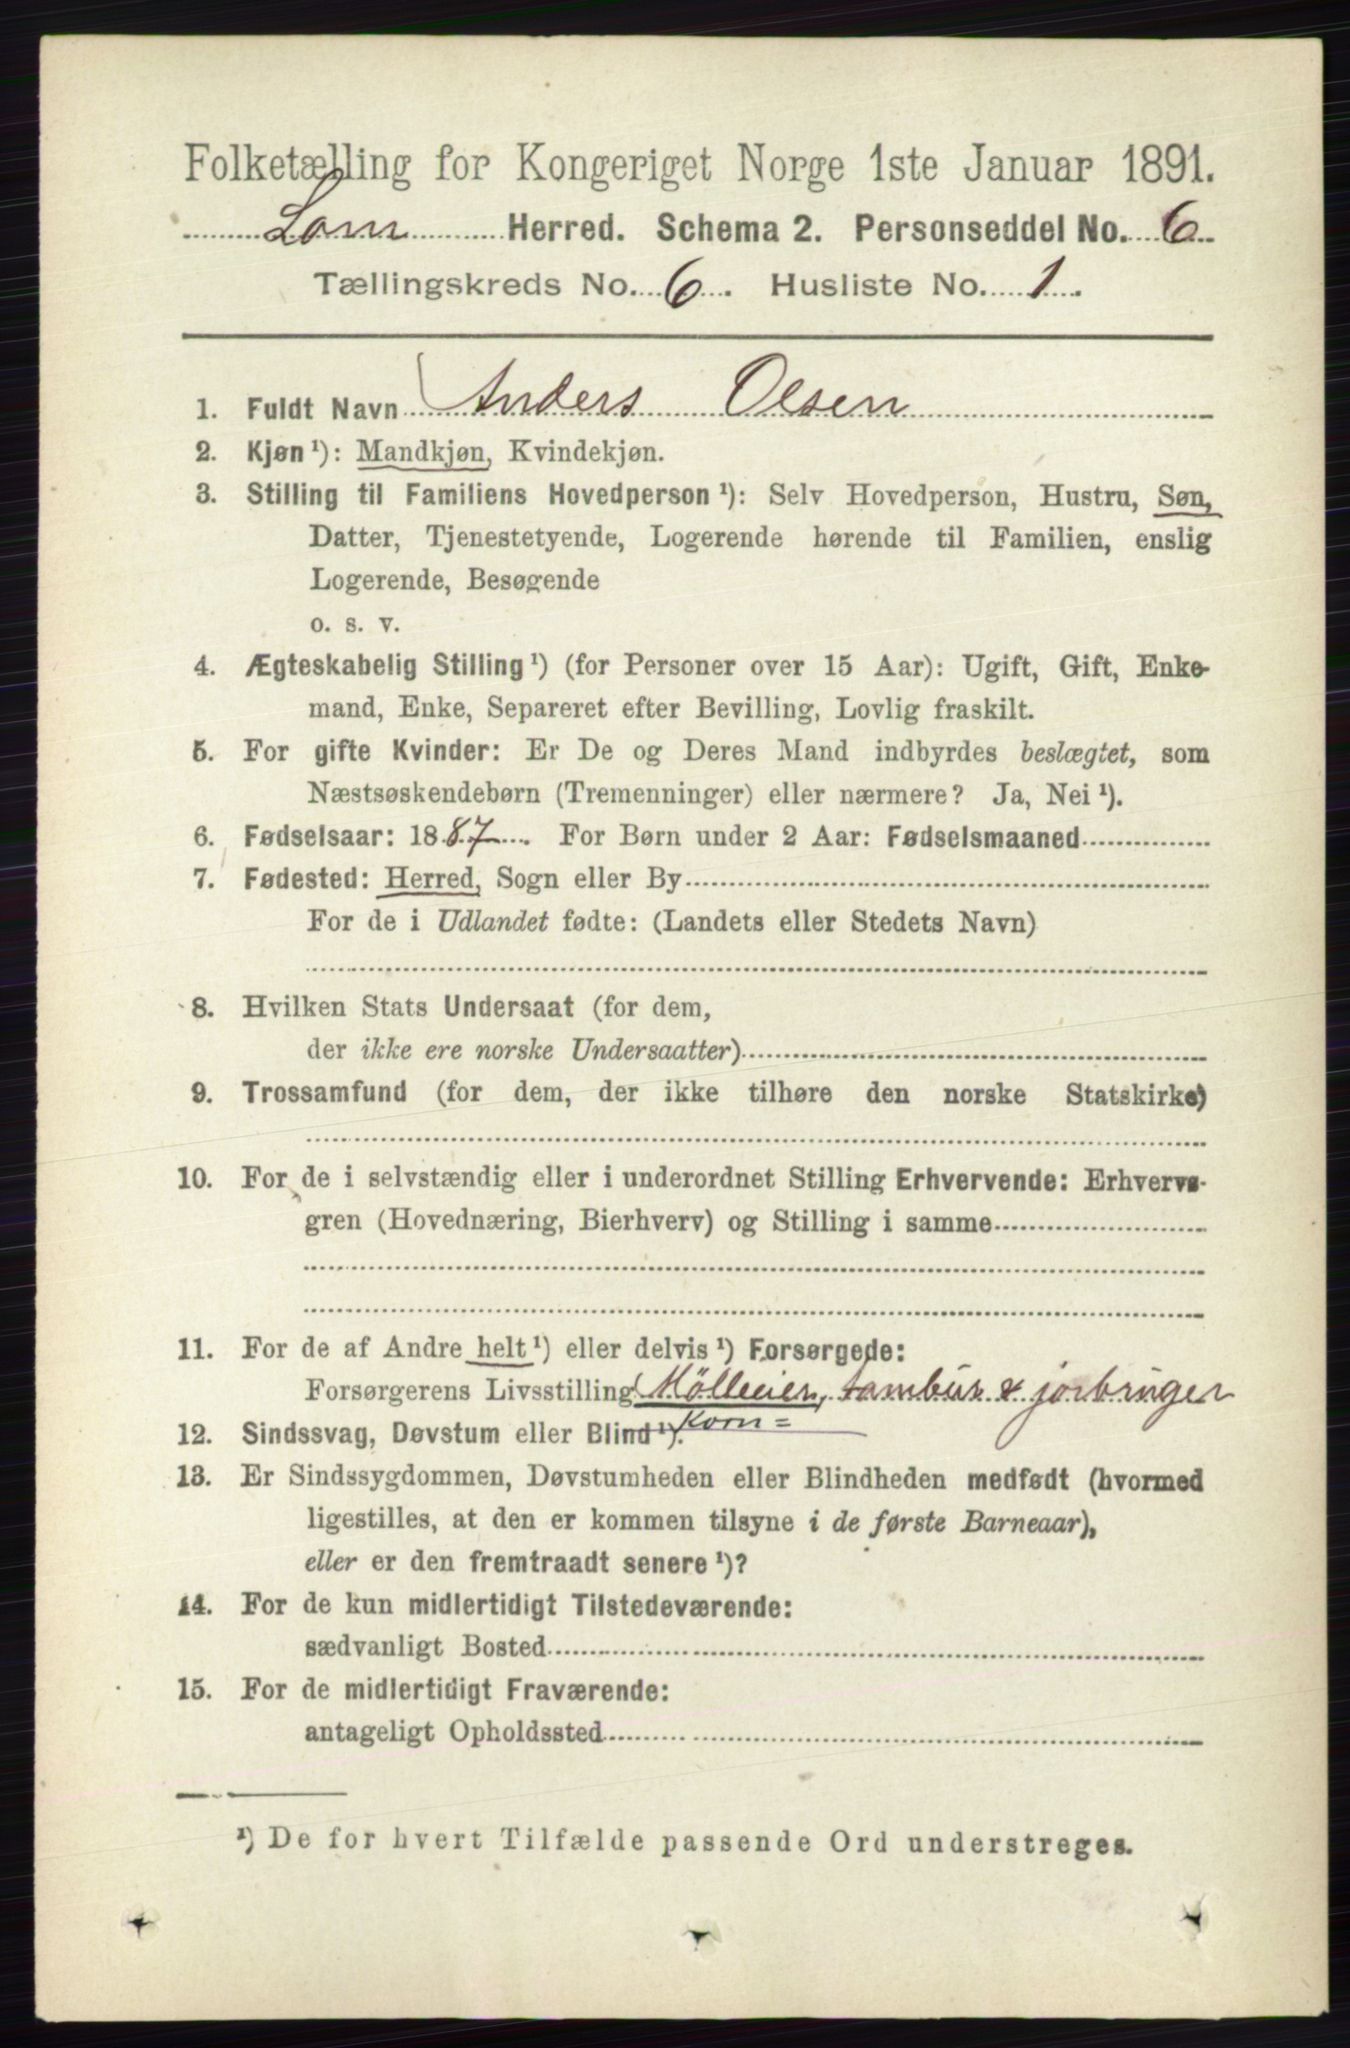 Folketælling for Kongeriget Norge 1ste Januar 1891.
Lom Herred. Schema 2. Personseddel No. 6
Tællingskreds No. 6. Husliste No. 1.
1. Fuldt Navn Anders Olsen
2. Kjøn¹): Mandkjøn, Kvindekjøn.
3. Stilling til Familiens Hovedperson¹): Selv Hovedperson, Hustru, Søn,
Datter, Tjenestetyende, Logerende hørende til Familien, enslig
Logerende, Besøgende
o. s. v.
4. Ægteskabelig Stilling¹) (for Personer over 15 Aar): Ugift, Gift, Enke-
mand, Enke, Separeret efter Bevilling, Lovlig fraskilt.
5. For gifte Kvinder: Er De og Deres Mand indbyrdes beslægtet, som
Næstsøskendebørn (Tremenninger) eller nærmere? Ja, Nei¹).
6. Fødselsaar: 1887. For Børn under 2 Aar: Fødselsmaaned
7. Fødested: Herred, Sogn eller By
For de i Udlandet fødte: (Landets eller Stedets Navn)
8. Hvilken Stats Undersaat (for dem,
der ikke ere norske Undersaatter)
9. Trossamfund (for dem, der ikke tilhøre den norske Statskirke)
10. For de i selvstændig eller i underordnet Stilling Erhvervende: Erhvervs-
gren (Hovednæring, Bierhverv) og Stilling i samme
11. For de af Andre helt¹) eller delvis¹) Forsørgede:
Forsørgerens Livsstilling Mölleeier, tambur & jorbruger
Korn=
12. Sindssvag, Døvstum eller Blind¹).
13. Er Sindssygdommen, Døvstumheden eller Blindheden medfødt (hvormed
ligestilles, at den er kommen tilsyne i de første Barneaar),
eller er den fremtraadt senere¹)?
14. For de kun midlertidigt Tilstedeværende:
sædvanligt Bosted
15. For de midlertidigt Fraværende:
antageligt Opholdssted
¹) De for hvert Tilfælde passende Ord understreges.